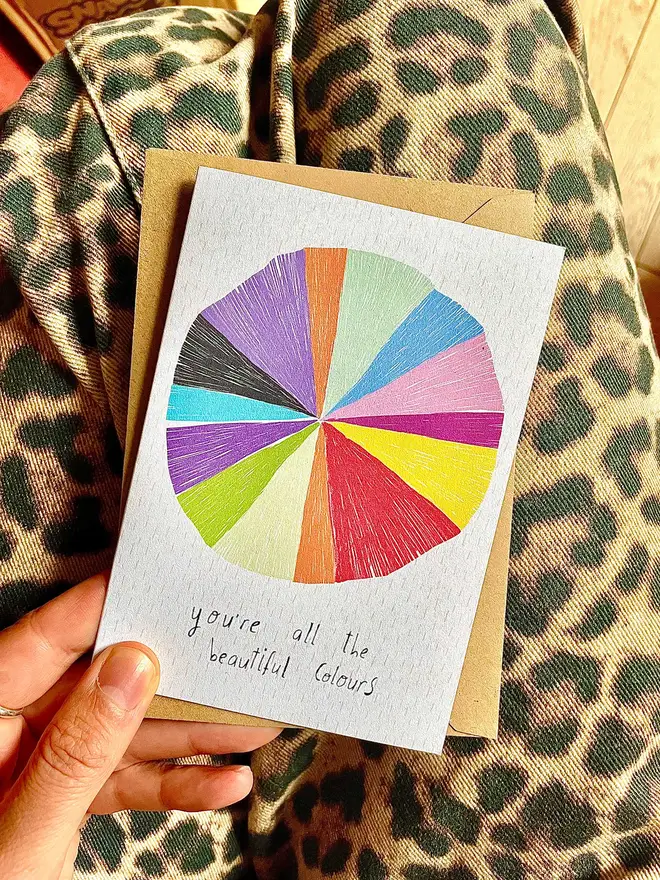 SNA
you're all the
beautiful Colours